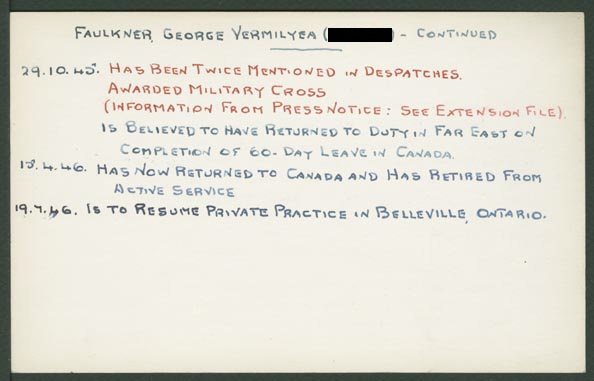 FAULKNER, GEORGE VERMILYEA ( ) - CONTINUED
29.10.45. HAS BEEN TWICE MENTIONED IN DESPATCHES.
AWARDED MILITARY CROSS
(INFORMATION FROM PRESS NOTICE: SEE EXTENSION FILE).
IS BELIEVED TO HAVE RETURNED TO DUTY IN FAR EAST ON
COMPLETION OF 60-DAY LEAVE IN CANADA.
15.4.46. HAS NOW RETURNED TO CANADA AND HAS RETIRED FROM
ACTIVE SERVICE
19.7.46. IS TO RESUME PRIVATE PRACTICE IN BELLEVILLE, ONTARIO.